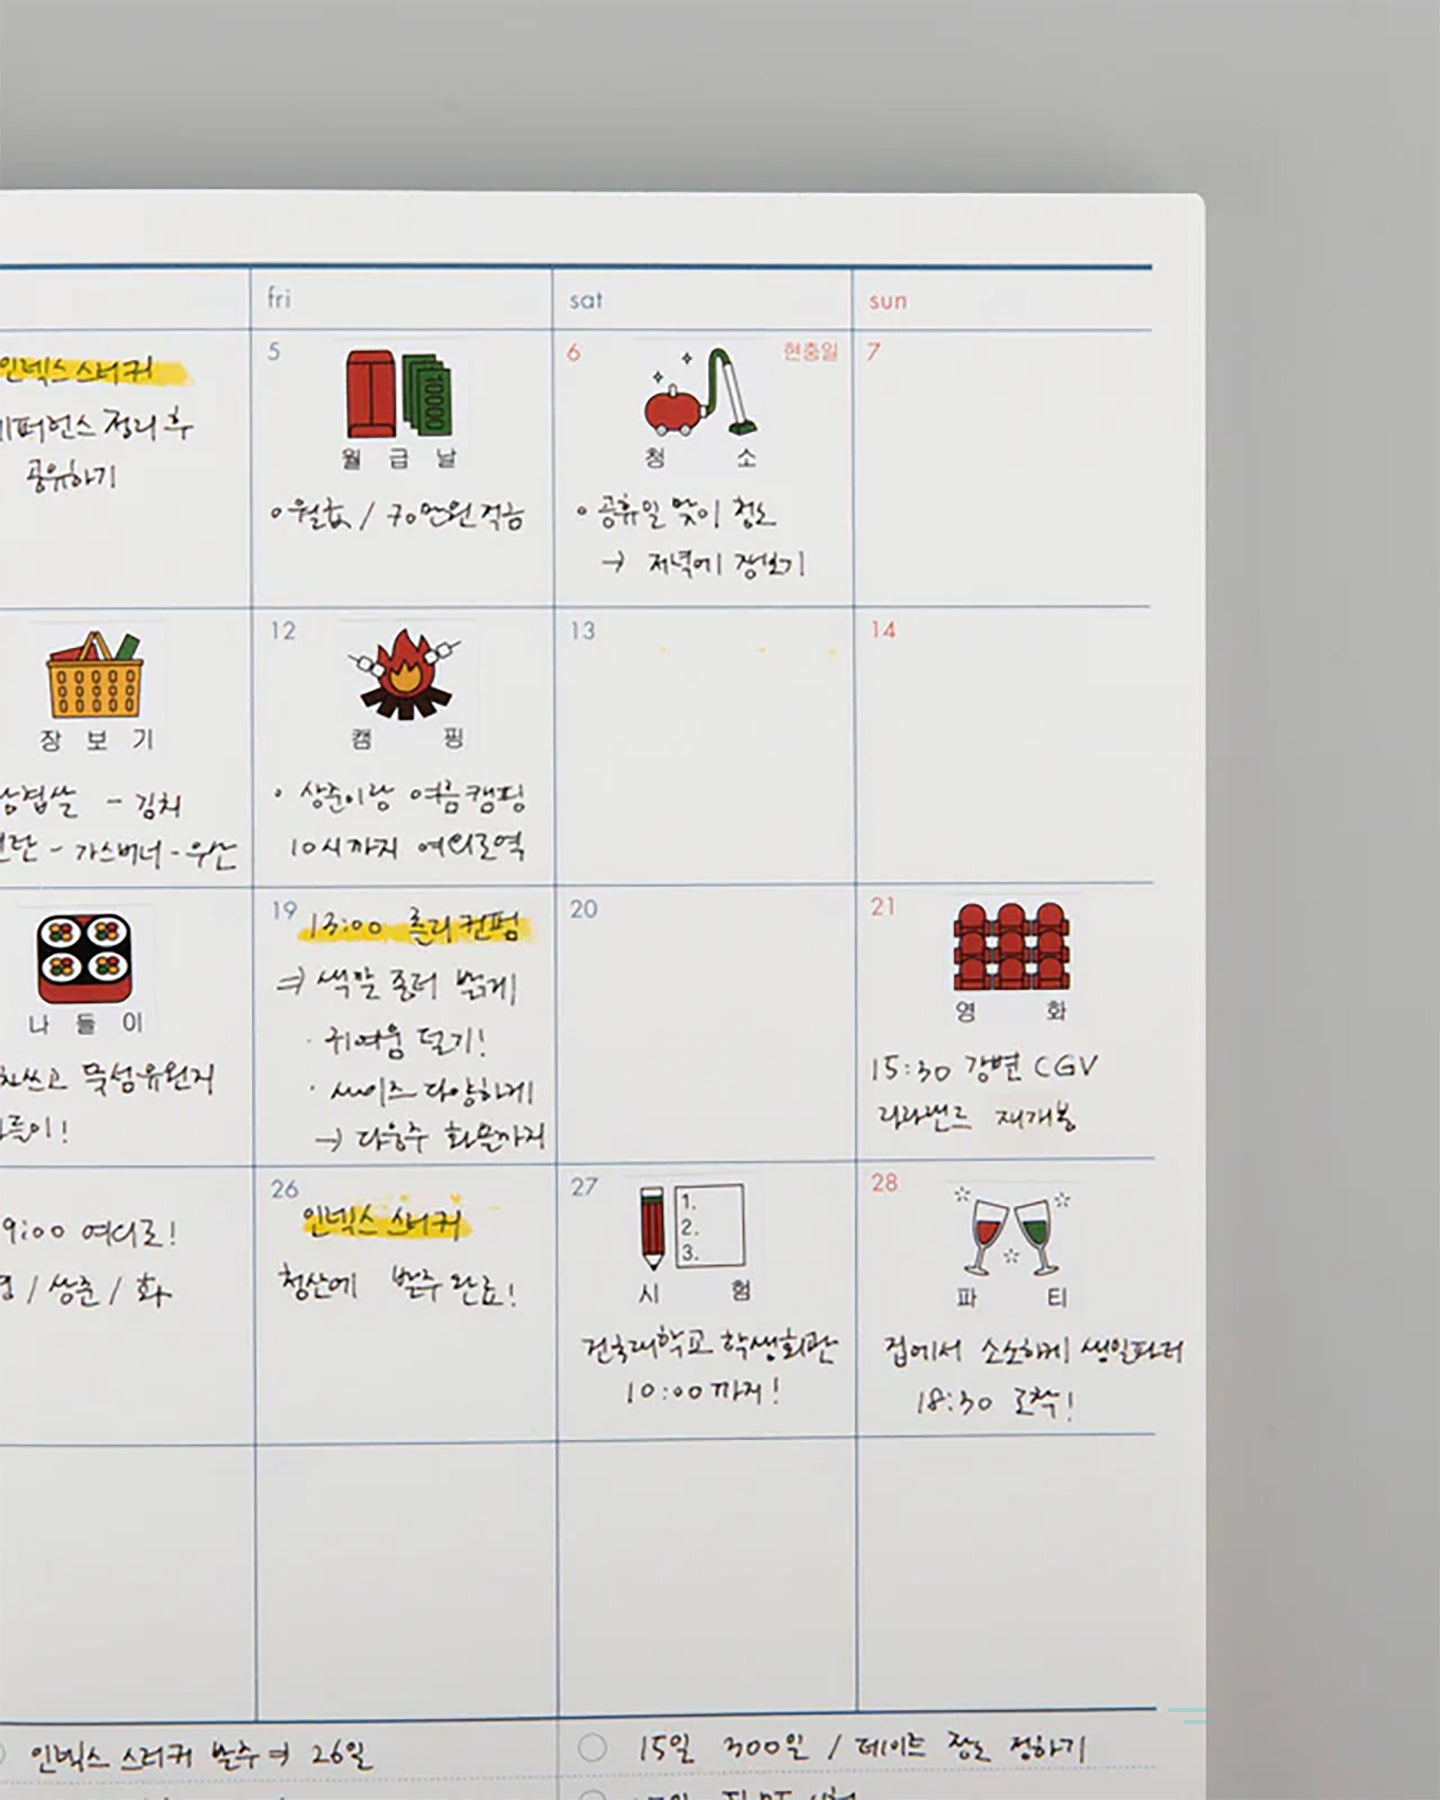 fri
sat
sun
인덱스 스티커
레퍼런스 정리 후
공유하기
5
월급날
• 월급 / 70만원 적금
6
현충일
청소
• 공휴일 맞이 청소
→ 저녁에 장보기
7
장보기
삼겹살 - 김치
- 가스버너 - 우산
12
캠핑
• 상준이랑 여름캠핑
10시까지 여의도역
13
14
나들이
뚝섬유원지
나들이!
19
13:00 컨펌
⇒ 색깔 좀더 밝게
· 귀여움 덜기!
· 싸이즈 다양하게
→ 다음주 화요일까지
20
21
영화
15:30 강변 CGV
라라랜드 재개봉
9:00 여의도!
/ 상준 / 화
26
인덱스 스티커
청산에 발주 완료!
27
1.
2.
3.
시험
건국대학교 학생회관
10:00까지!
28
파티
집에서 소소하게 생일파티
18:30 도착!
인덱스 스티커 발주 ⇒ 26일
15일 300일 / 데이트 장소 정하기